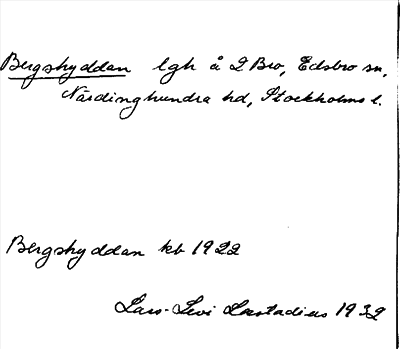 Bergshyddan lgh å 2 Bro, Edsbro sn,
Närdinghundra hd, Stockholms l.
Bergshyddan kb 1922
Lars-Levi Læstadius 1932